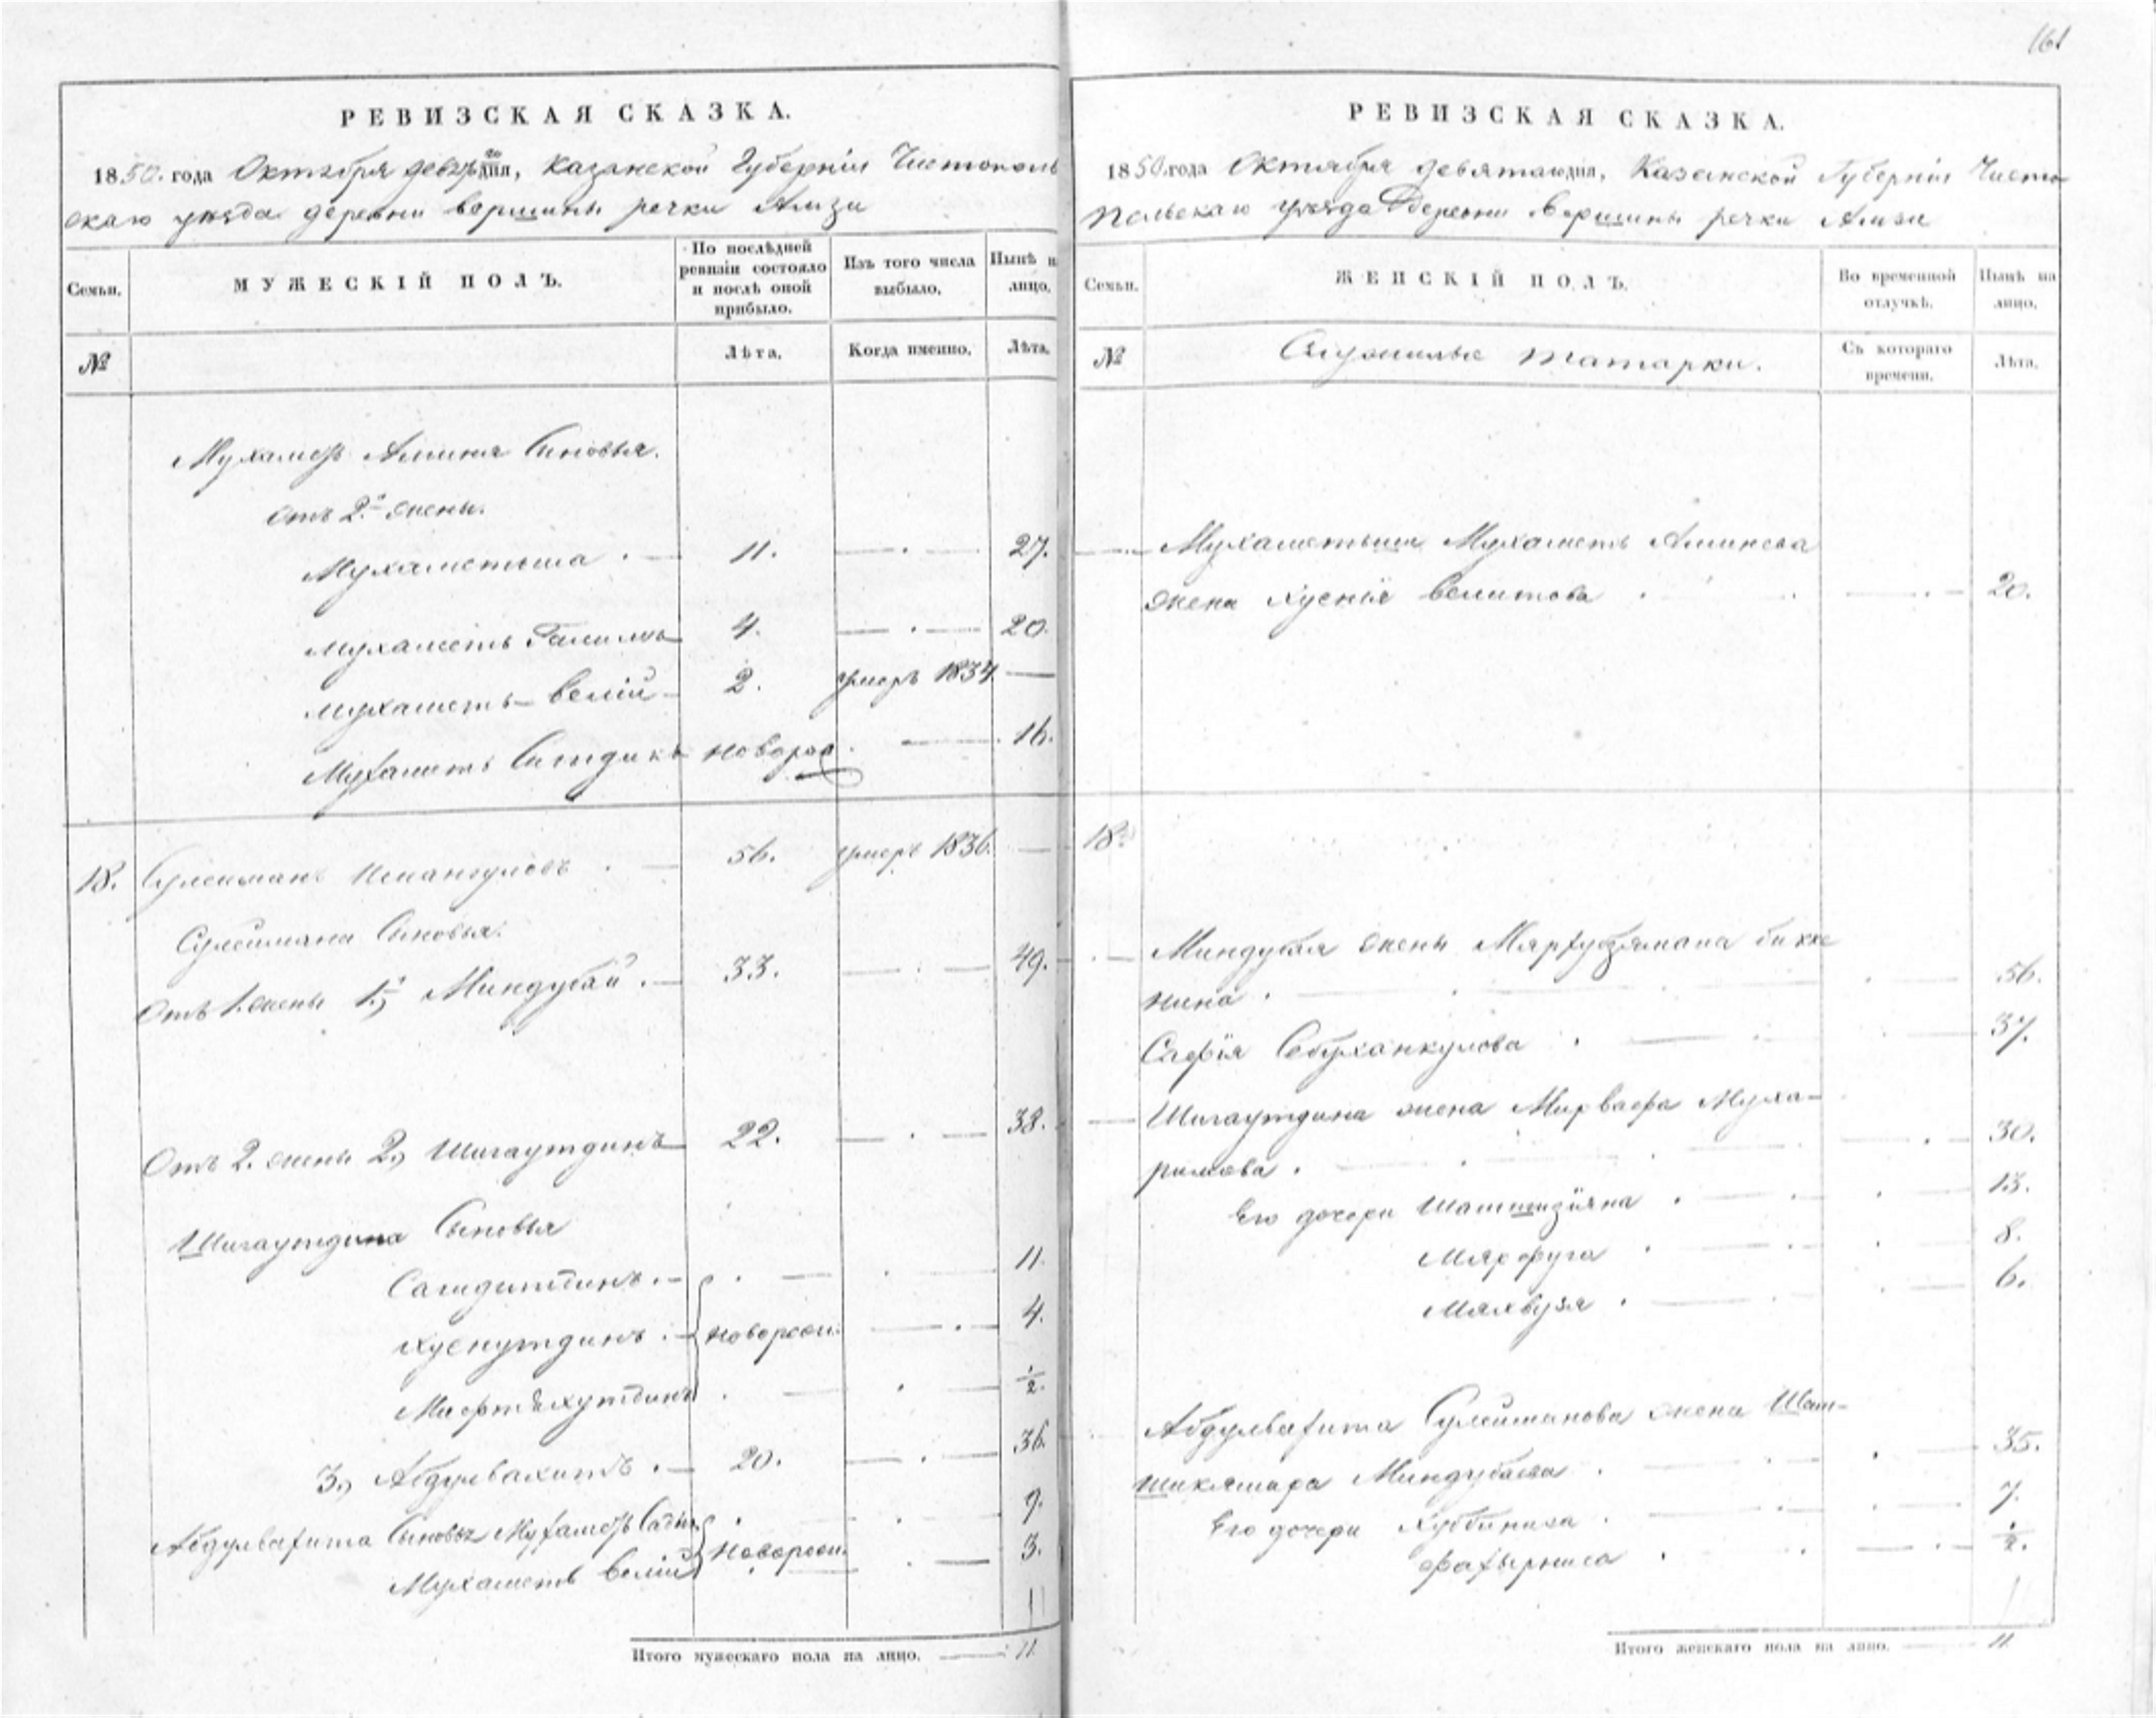 161
РЕВИЗСКАЯ СКАЗКА.
1850. года Октября девят го дня, Казанской Губерніи Чистополь
скаго уѣзда деревни вершины речки Амзи
Семьи.
МУЖЕСКІЙ ПОЛЪ.
По послѣдней ревизіи состояло и послѣ оной прибыло.
Изъ того числа выбыло.
Нынѣ на лицо.
№
Лѣта.
Когда именно.
Лѣта.
Мухаметъ Амина Сыновья.
отъ 2й жены.
Мухаметьша . — 11. — . — 27.
Мухаметъ Галимъ 4. — . — 20.
Мухаметъ Велій 2. умеръ 1834. —
Мухаметъ Ситдикъ новорож . — 16.
18. Сулейманъ . — 56. умеръ 1836. —
Сулеймана Сыновья.
Отъ 1. жены 1й, Миндубай . — 33. — . — 49.
Отъ 2. жены 2, Шигаутдинъ — 22. — . — 38.
Шигаутдина Сыновья
Сагидитдинъ . — . — . — 11.
Хуснутдинъ . — новорож. — . — 4.
. — . — ½.
3, Абдулвахитъ . — 20. — . — 36.
Абдулвахита Сыновья Мухаметъ . — . — 9.
Мухаметъ Велій новорож. . — 3.
Итого мужескаго пола на лицо. — 11.
РЕВИЗСКАЯ СКАЗКА.
1850. года Октября девятаго дня, Казанской Губерніи Чисто
польскаго уѣзда Деревни Вершины речки Амзи
Семьи.
ЖЕНСКІЙ ПОЛЪ.
Во временной отлучкѣ.
Нынѣ на лицо.
№
Служилые татарки.
Съ котораго времени.
Лѣта.
Мухаметьши Мухаметъ Аминева
жена Хуснія Велитова . — . — 20.
18.
Миндубая жены Бикке
нина . — . — 56.
Сафія . — . — 37.
Шигаутдина жена Муха-
римова . — . — 30.
Его дочери . — . — 13.
. — . — 8.
Мяхвузя . — . — 6.
Абдулвахита Сулейманова жена Шам-
Миндубаева . — . — 35.
Его дочери . — . — 7.
. — . — ½.
Итого женскаго пола на лицо. — 11